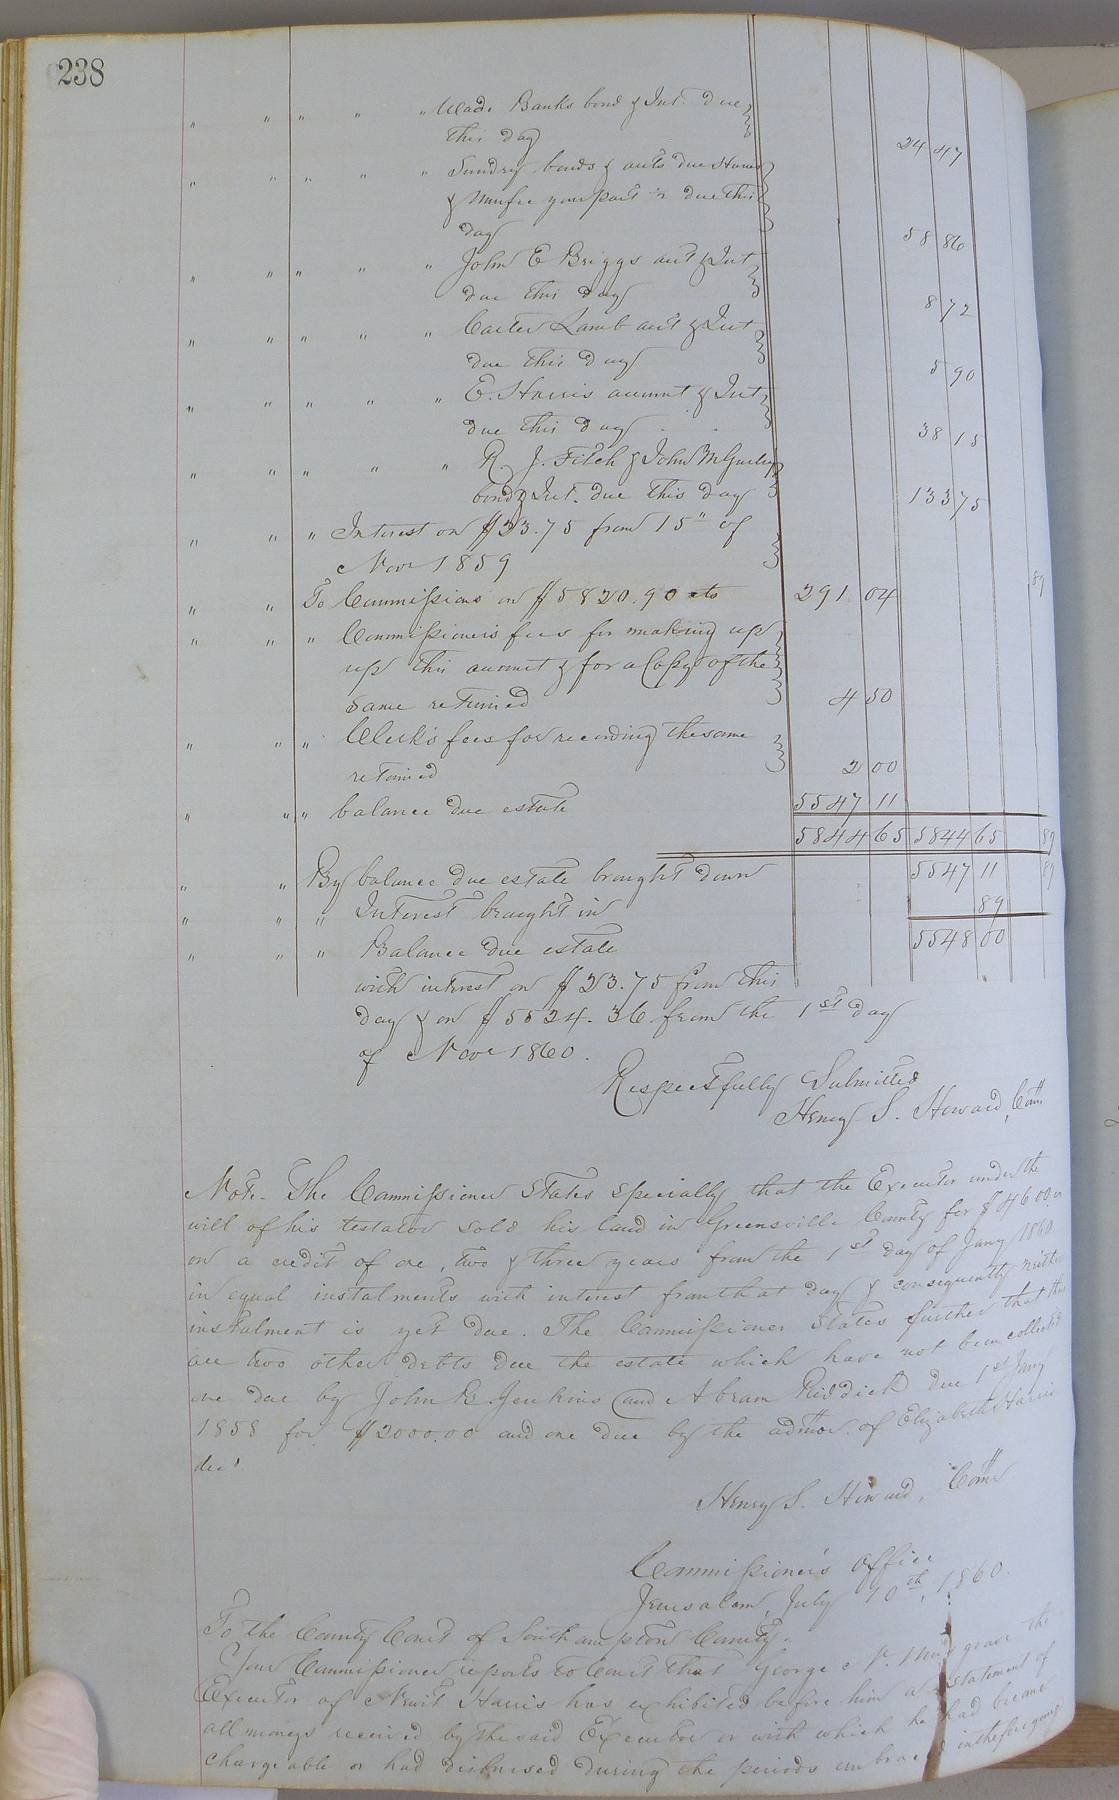 238
" " " " " Wade Banks bond & Int. due
this day 24 47
" " " " " Sundry bonds & acts due Harris
& your part in due this
day 58 86
" " " " " John E Briggs act & Int
due this day 8 72
" " " " " Carter Lamb act & Int
due this day 5 90
" " " " " E. Harris account & Int
due this day 38 15
" " " " " R. J. Fitch & John
bond & Int. due this day 133 75
" " " Interest on $23.75 from 15" of
Novr 1859 89
" " To Commissions on $5820.90 cts 291 04
" " " Commissioner's fees for making up
up this account & for a Copy of the
same returned 4 50
" " " Clerk's fees for recording the same
returned 2 00
" " " balance due estate 5547 11
5844 65 5844 65 89
" " By balance due estate brought down 5547 11 89
" " " Interest brought in 89
" " " Balance due estate 5548 00
with interest on $23.75 from this
day & on $5524.36 from the 1st day
of Novr 1860.
Respectfully Submitted
Henry S. Howard, Comr
Note. The Commissioner States specially that the Executor under the
will of his testator sold his land in Greensville County for $4600.
on a credit of one, two & three years from the 1st day of Jany 1860
in equal instalments with interest from that day & consequently neither
instalment is yet due. The Commissioner States further that there
are two other debts due the estate which have not been collected
one due by John B. Jenkins and Abram Riddick due 1st Jany
1858 for $2000.00 and one due by the admor. of Elizabeth Harris
decd
Henry S. Howard, Comr
Commissioner's Office
Jerusalem, July 10th, 1860.
To the County Court of Southampton County.
Your Commissioner reports to Court that George N. Musgrave the
Executor of Newit Harris has exhibited before him a statement of
all moneys received by the said Executor or with which he had became
chargeable or had disbursed during the periods embraced in the foregoing